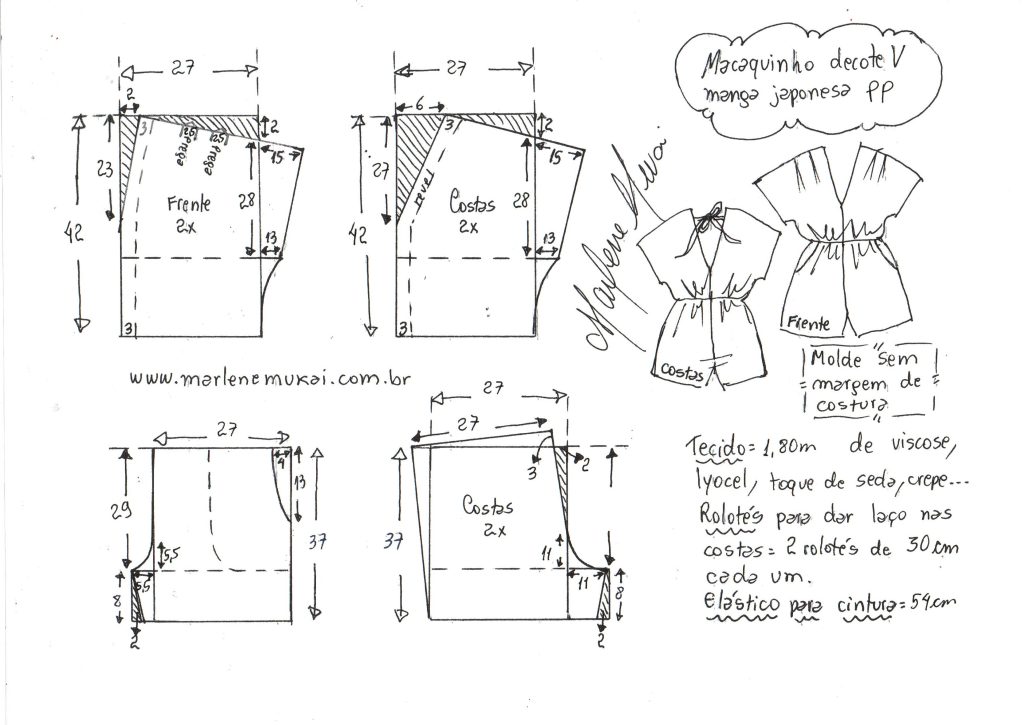 Macaquinho decote V
manga japonesa PP
27
2
3
prega
2,5
prega
2,5
2
15
23
42
Frente
2x
28
13
3
27
6
3
2
15
27
42
revel
Costas
2x
28
13
3
Marlene Mukai
Frente
Costas
Molde sem
margem de
costura
www.marlenemukai.com.br
27
4
13
29
37
5,5
5,5
8
2
27
27
3
2
Costas
2x
37
11
11
8
2
Tecido = 1,80m de viscose,
lyocel, toque de seda, crepe...
Rolotés para dar laço nas
costas = 2 rolotés de 30 cm
cada um.
elástico para cintura = 54 cm